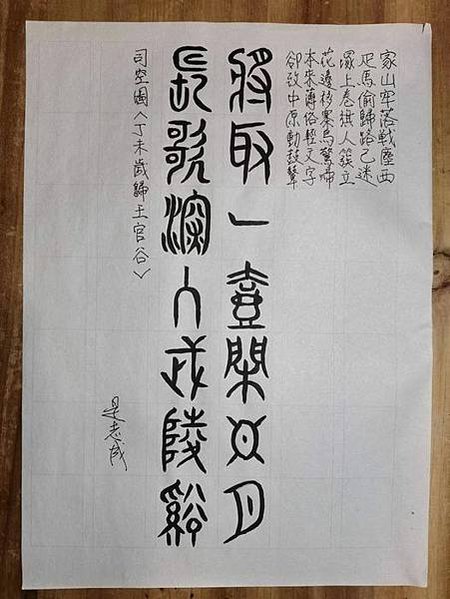 家山牢落戰塵西
疋馬偷歸路已迷
塚上卷旗人簇立
花邊移寨鳥驚啼
本來薄俗輕文字
卻致中原動鼓鼙
將取一壺閑日月
長歌深入武陵谿
司空圖〈丁未歲歸王官谷〉
是志成